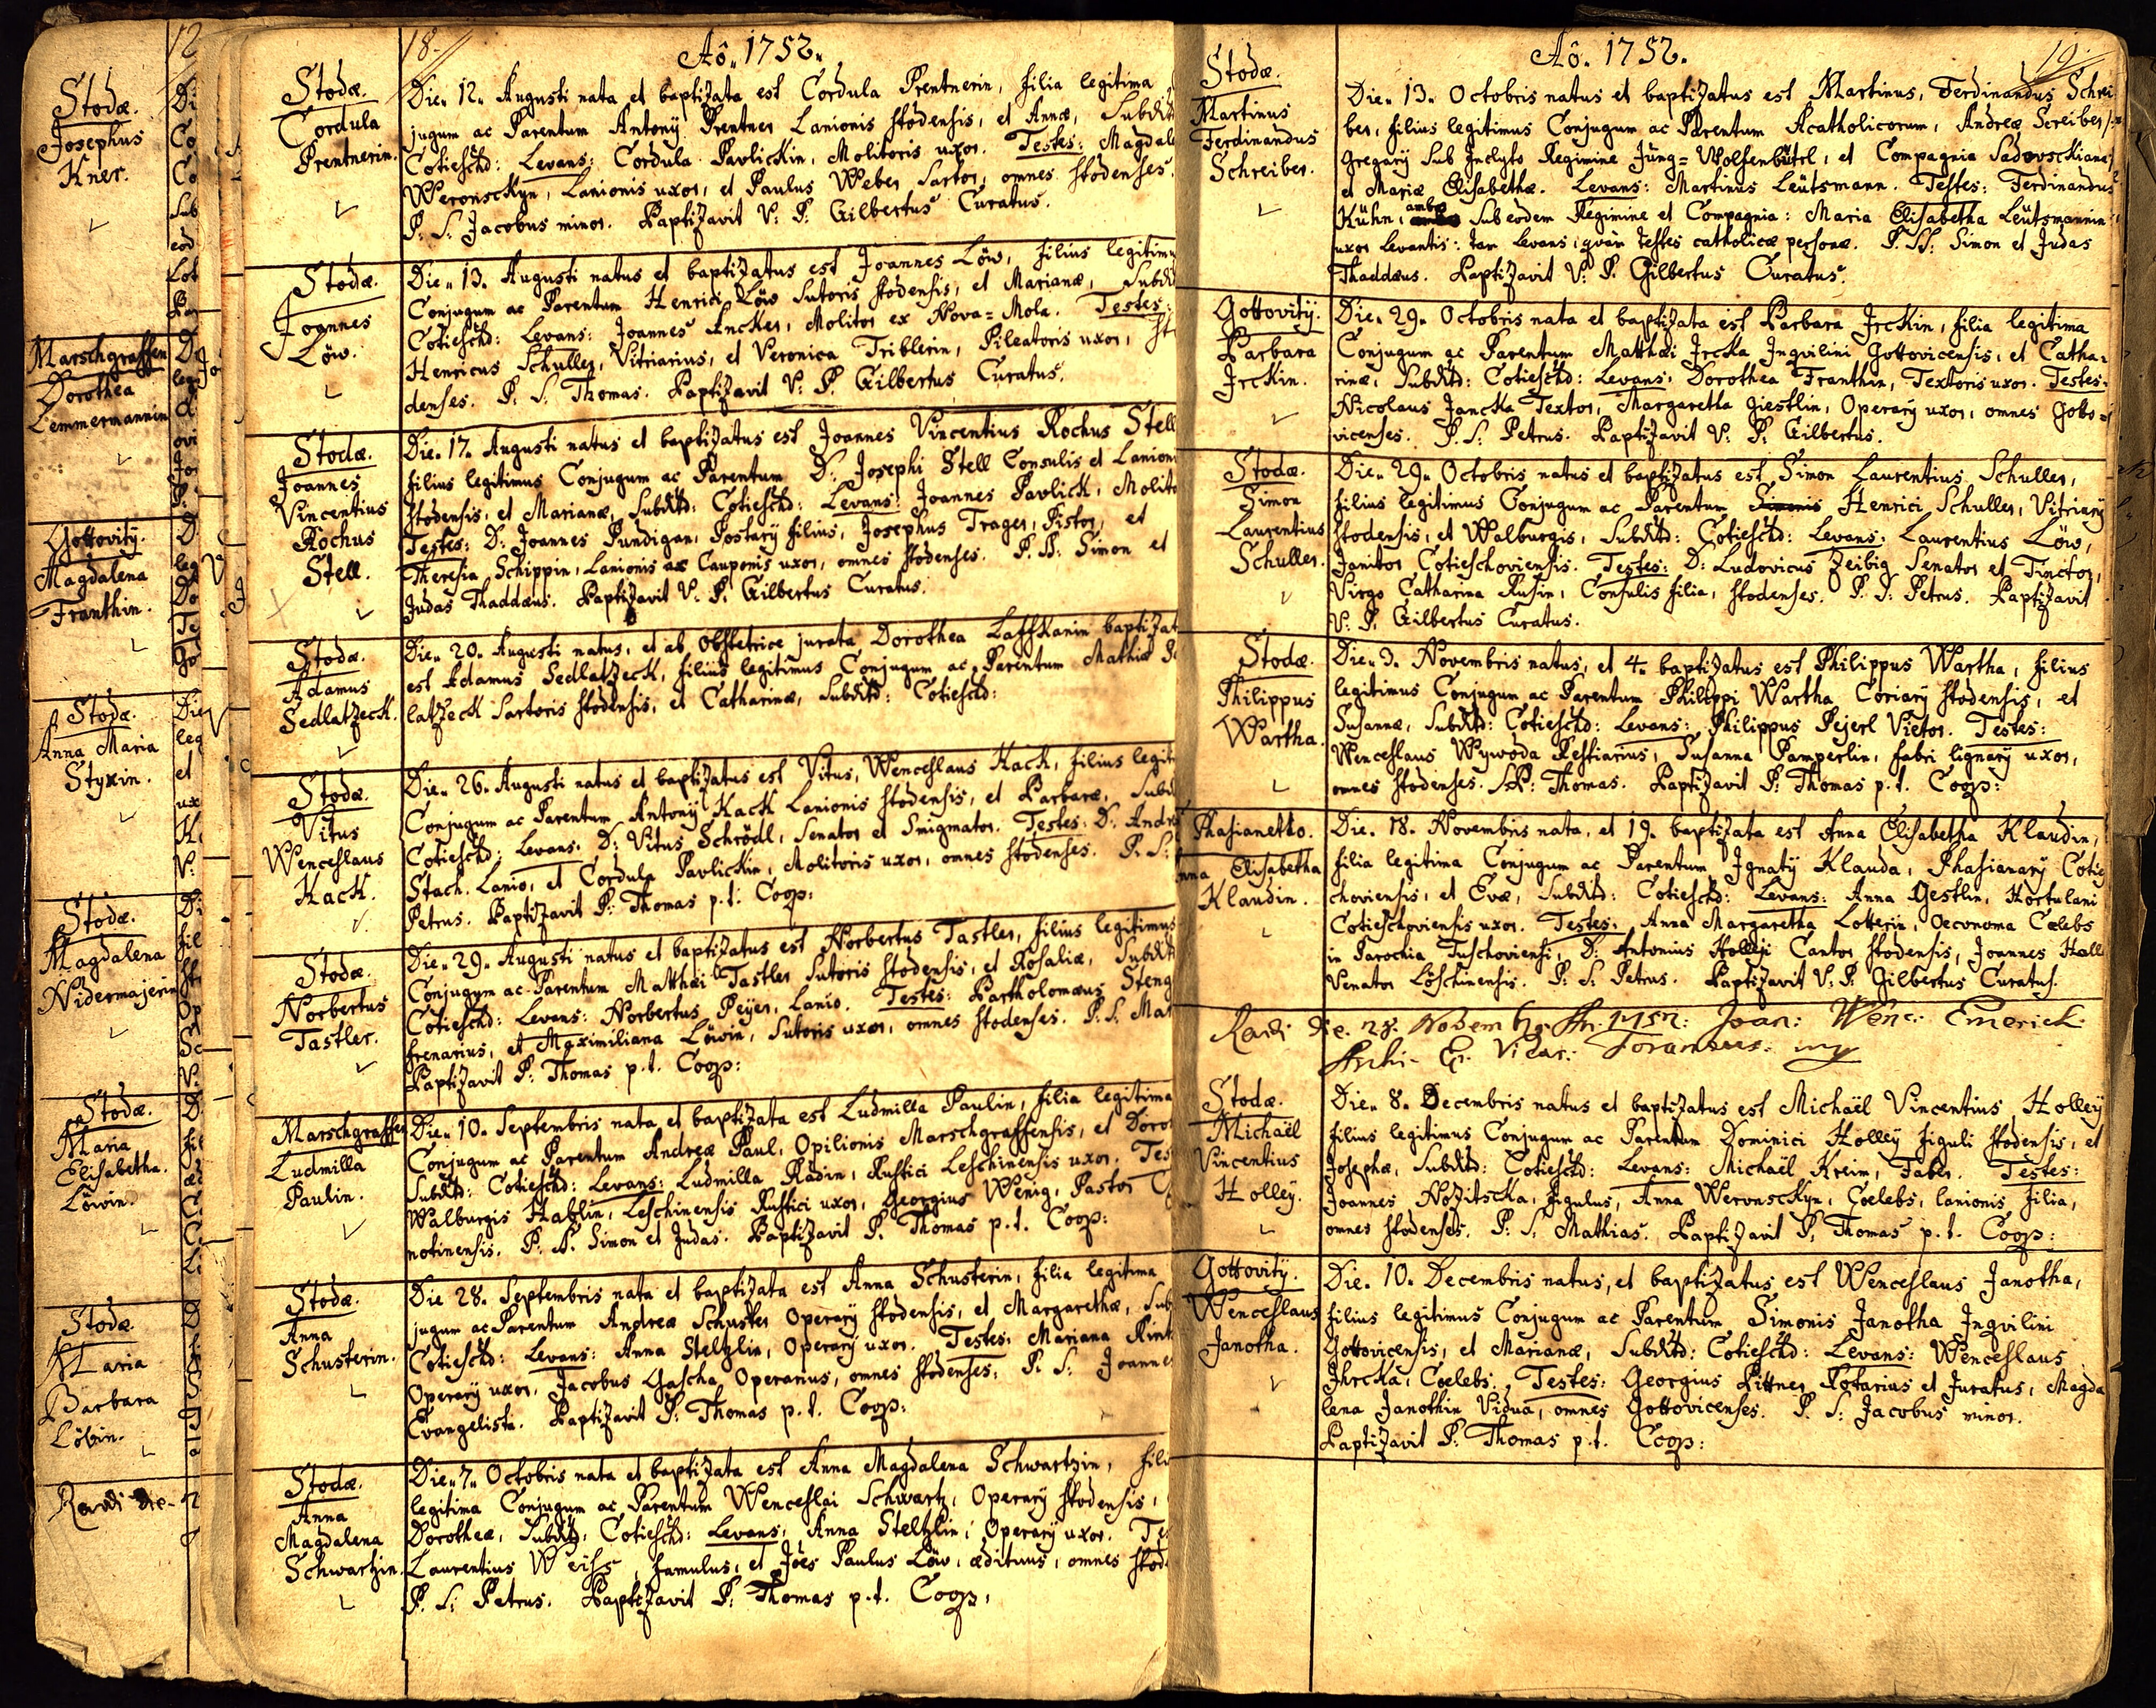 12
Stodæ.
Josephus
Kner.
Marschgraffen
Dorothea
Lemmermannin
Gottovitÿ.
Magdalena
Franthin.
Stodæ.
Anna Maria
Styxin.
Stodæ.
Magdalena
Nidermajerin
Stodæ.
Maria
Elisabetha.
Löwin.
Stodæ
Maria
Barbara
Löbin.
18.
Aô. 1752.
Stodæ.
Cordula
Prentnerin.
Die. 12. Augusti nata et baptizata est Cordula Prentnerin, filia legitima
jugum ac Parentum Antonÿ Prentner Lanionis Stodensis, et Annæ, Subdit
Cotieschd: Levans: Cordula Pavlickin, Molitoris uxor. Testes: Magdale
Weronsckyn, Lanionis uxor, et Paulus Weber Sartor, omnes Stodenses.
P. S. Jacobus minor. Baptizavit V: P: Gilbertus Curatus.
Stodæ.
Joannes
Löw.
Die. 13. Augusti natus et baptizatus est Joannes Löw, filius legitimu
Conjugum ac Parentum Henrici Löw Sutoris Stodensis, et Marianæ, Subdi
Cotieschd: Levans: Joannes Encker, Molitor ex Nova=Mola. Testes:
Henricus Schuller, Vitriarius, et Veronica Triblerin, Pileatoris uxor, Sto
denses. P. S. Thomas. Baptizavit V: P. Gilbertus Curatus.
Stodæ.
Joannes
Vincentius
Rochus
Stell.
Die. 17. Augusti natus et baptizatus est Joannes Vincentius Rochus Stell
filius legitimus Conjugum ac Parentum D: Josephi Stell Consulis et Lanioni
Stodensis, et Marianæ, Subditd: Cotieschd: Levans: Joannes Pavlick, Molito
Testes: D: Joannes Pundigan, Postarÿ filius, Josephus Trager, Pistor, et
Theresia Schippin, Lanionis ac Cauponis uxor, omnes Stodenses. P. SS: Simon et
Judas Thaddæus. Baptizavit V. P. Gilbertus Curatus.
Stodæ.
Adamus
Sedlatzeck.
Die. 20. Augusti natus, et ab obstetrice jurata Dorothea Laffkanin baptizat
est Adamus Sedlatzeck, filius legitimus Conjugum ac Parentum Mathiæ Se
latzeck Sartoris Stodensis, et Catharinæ, Subditd: Cotieschd:
Stodæ.
Vitus
Wenceslaus
Kack.
Die. 26. Augusti natus et baptizatus est Vitus, Wenceslaus Kack, filius legit
Conjugum ac Parentum Antonÿ Kack Lanionis Stodensis, et Barbaræ, Subd
Cotieschd: Levans: D: Vitus Schrödl, Senator et Smigmator. Testes: D: Andre
Stach. Lanio, et Cordula Pavlickin, Molitoris uxor, omnes Stodenses. P. S:
Petrus. Baptizavit P: Thomas p.t. Coop:
Stodæ.
Norbertus
Tastler.
Die. 29. Augusti natus et baptizatus est Norbertus Tastler, filius legitimus
Conjugum ac Parentum Matthæi Tastler Sutoris Stodensis, et Rosaliæ, Subdit
Cotieschd: Levans: Norbertus Peyer, Lanio. Testes: Bartholomæus Steng
frenarius, et Maximiliana Löwin, Sutoris uxor, omnes Stodenses. P. S. Mat
Baptizavit P: Thomas p.t. Coop:
Marschgraffen
Ludmilla
Paulin.
Die. 10. Septembris nata et baptizata est Ludmilla Paulin, filia legitima
Conjugum ac Parentum Andreæ Paul, Opilionis Marschgraffensis, et Dorot
Subditd: Cotieschd: Levans: Ludmilla Radin, Rustici Leschinensis uxor. Tes
Walburgis Hablin, Leschinensis Rustici uxor, Georgius Wenig, Pastor
notinensis. P: SS. Simon et Judas. Baptizavit P. Thomas p.t. Coop:
Stodæ.
Anna
Schusterin.
Die 28. Septembris nata et baptizata est Anna Schusterin, filia legitima
jugum ac Parentum Andreæ Schuster Operarÿ Stodensis, et Margarethæ, Sub
Cotieschd: Levans: Anna Steltzlin, Operarÿ uxor. Testes: Mariana Rint
Operarÿ uxor, Jacobus Gascha, Operarius, omnes Stodenses. P. S: Joannes
Evangelista. Baptizavit P: Thomas p.t. Coop:
Stodæ.
Anna
Magdalena
Schwartzin.
Die. 7. Octobris nata et baptizata est Anna Magdalena Schwartzin, fili
legitima Conjugum ac Parentum Wenceslai Schwartz, Operarÿ Stodensis,
Dorotheæ, Subditd: Cotieschd: Levans: Anna Steltzlin, Operarÿ uxor. Te
Laurentius Weiss, famulus, et Jões Paulus Löw, ædituus, omnes Stod
P. S: Petrus. Baptizavit P: Thomas p.t. Coop:
19.
Aô. 1752.
Stodæ.
Martinus
Ferdinandus
Schreiber.
Die. 13. Octobris natus et baptizatus est Martinus, Ferdinandus Schrei
ber, filius legitimus Conjugum ac Parentum Acatholicorum, Andreæ Screiber
Gregarÿ sub Inclyto Regimine Jung=Wolfenbütel, et Compagnia Sadovsckiana
et Mariæ Elisabethæ. Levans: Martinus Leütsmann. Testes: Ferdinandus
Kühn, ambo sub eodem Regimine et Compagnia: Maria Elisabetha Leütsmannin
uxor Levantis: tam Levans, quam testes catholicæ personæ. P. SS: Simon et Judas
Thaddæus. Baptizavit V: P. Gilbertus Curatus.
Gottovitÿ.
Barbara
Irckin.
Die. 29. Octobris nata et baptizata est Barbara Irckin, filia legitima
Conjugum ac Parentum Matthæi Ircka Inqvilini Gottovicensis, et Catha=
rinæ, Subditd: Cotieschd: Levans: Dorothea Franthin, Textoris uxor. Testes:
Nicolaus Jancka Textor, Margaretha Giestlin, Operarÿ uxor, omnes Goto=
vicenses. P. S: Petrus. Baptizavit V: P: Gilbertus.
Stodæ.
Simon
Laurentius
Schuller.
Die. 29. Octobris natus et baptizatus est Simon Laurentius Schuller,
filius legitimus Conjugum ac Parentum Simonis Henrici Schuller, Vitriarÿ
Stodensis, et Walburgis, Subditd: Cotieschd: Levans: Laurentius Löw,
Janitor Cotieschoviensis. Testes: D: Ludovicus Zeibig Senator et Tinctor,
Virgo Catharina Rusin, Consulis filia, Stodenses. P. S: Petrus. Baptizavit
V: P. Gilbertus Curatus.
Stodæ.
Philippus
Wartha.
Die. 3. Novembris natus, et 4. baptizatus est Philippus Wartha, filius
legitimus Conjugum ac Parentum Philippi Wartha Coriarÿ Stodensis, et
Susannæ, Subditd: Cotieschd: Levans: Philippus Pejerl Vietor. Testes:
Wenceslaus Wywoda Restiarius, Susanna Pamperlin, fabri lignarÿ uxor,
omnes Stodenses. S.P: Thomas. Baptizavit P: Thomas p.t. Coop:
Phasianetto.
nna Elisabetha
Klaudin.
Die. 18. Novembris nata, et 19. baptizata est Anna Elisabetha Klaudin,
filia legitima Conjugum ac Parentum Ignatÿ Klauda, Phasianarÿ Cotie
choviensis, et Evæ, Subditd: Cotieschd: Levans: Anna Gestlin, Hortulani
Cotieschoviensis uxor. Testes: Anna Margaretha Lotterin, Oeconoma Cælebs
in Parochia Tuschoviensi, D: Antonius Holleÿ Cantor Stodensis, Joannes Hall
Venator Löschinensis. P: S. Petrus. Baptizavit V: P. Gilbertus Curatus.
Die. 28. Novemb: 1752: Joan: Wenc: Emerick
Stodæ.
Michaël
Vincentius
Holleÿ.
Die. 8. Decembris natus et baptizatus est Michaël Vincentius Holleÿ
filius legitimus Conjugum ac Parentum Dominici Holleÿ Figuli Stodensis, et
Josephæ, Subditd: Cotieschd: Levans: Michaël Kreim, Faber. Testes:
Joannes Nozitscka, Figulus, Anna Weronsckyn, Cœlebs, lanionis filia,
omnes Stodenses. P. S. Mathias. Baptizavit P. Thomas p.t. Coop:
Gottovitÿ.
Wenceslaus
Janotha.
Die. 10. Decembris natus, et baptizatus est Wenceslaus Janotha,
filius legitimus Conjugum ac Parentum Simonis Janotha Inqvilini
Gottovicensis, et Marianæ, Subditd: Cotieschd: Levans: Wenceslaus
Jhrcka, Cœlebs. Testes: Georgius Littner Rotarius et Juratus, Magda
lena Janothin Vidua, omnes Gottovicenses. P. S: Jacobus minor.
Baptizavit P: Thomas p.t. Coop: